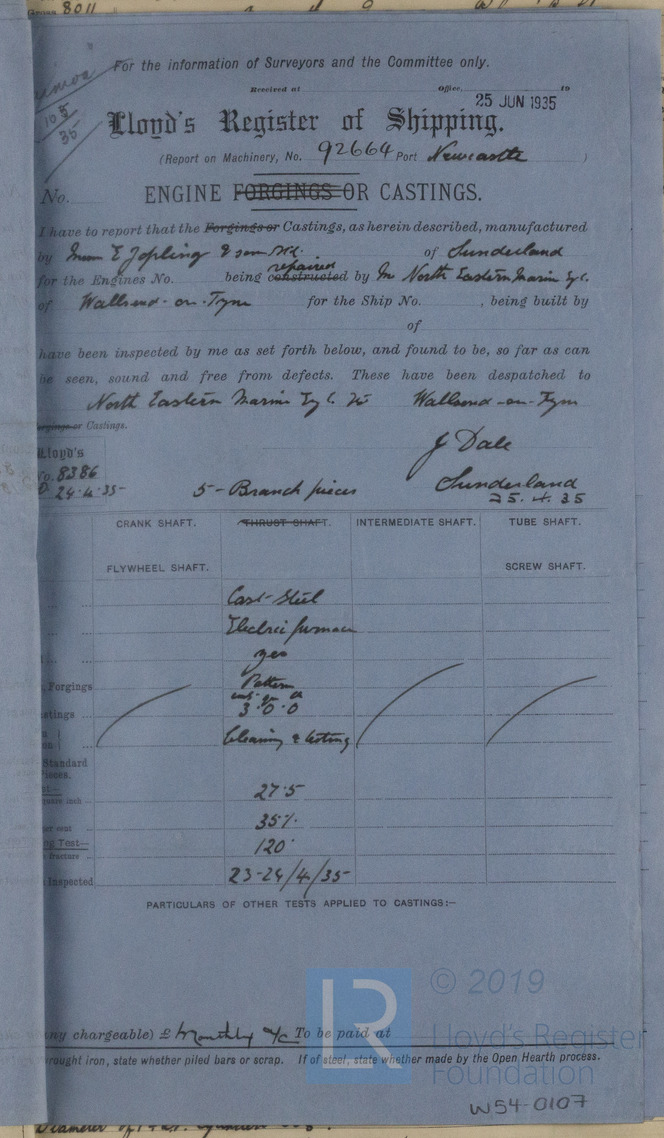 8011
For the information of Surveyors and the Committee only.
Received at Office, 19
25 JUN 1935
105
35
Lloyd's Register of Shipping.
(Report on Machinery, No. 92664 Port Newcastle )
No.
ENGINE FORGINGS OR CASTINGS.
I have to report that the Forgings or Castings, as herein described, manufactured
by E Jopling & son Ltd. of Sunderland
repaired
for the Engines No. being constructed by North Eastern Marine Eng C.
of Wallsend-on-Tyne for the Ship No. , being built by
of
have been inspected by me as set forth below, and found to be, so far as can
be seen, sound and free from defects. These have been despatched to
North Eastern Marine Eng C. Wallsend-on-Tyne
Forgings or Castings.
Lloyd's
No. 8386
J Dale
D 24.4.35
5-Branch pieces
Sunderland
25.4.35
CRANK SHAFT. THRUST SHAFT. INTERMEDIATE SHAFT. TUBE SHAFT.
FLYWHEEL SHAFT. SCREW SHAFT.
Cast-Steel
Electric furnace
yes
Forgings Pattern
cwt qr
3.0.0
Cleaning & testing
Standard
27.5
35%
per cent
120°
fracture
Inspected 23-24/4/35
PARTICULARS OF OTHER TESTS APPLIED TO CASTINGS:—
LR
© 2019
Lloyd's Register
Foundation
any chargeable) £ Monthly A/c To be paid at
wrought iron, state whether piled bars or scrap. If of steel, state whether made by the Open Hearth process.
W54-0107